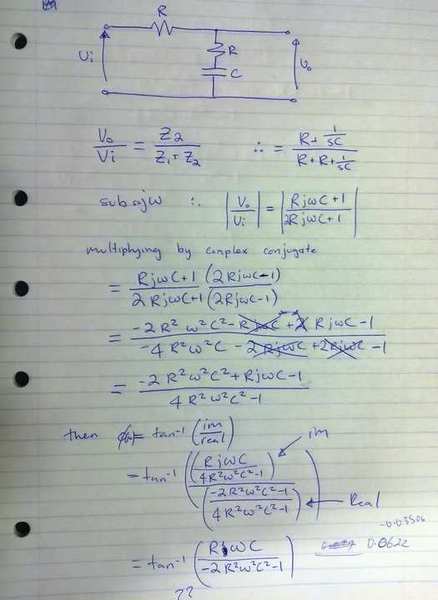 R
R
C
Vi
Vo
Vo/Vi = Z2/(Z1+Z2) ∴ = (R+1/sC)/(R+R+1/sC)
sub s=jω ∴ |Vo/Vi| = |(RjωC+1)/(2RjωC+1)|
multiplying by complex conjugate
= (RjωC+1)/(2RjωC+1) (2RjωC-1)/(2RjωC-1)
= (-2R²ω²C²-RjωC+2RjωC-1)/(-4R²ω²C-2RjωC+2RjωC-1)
= (-2R²ω²C²+RjωC-1)/(4R²ω²C²-1)
then = tan⁻¹(im/real)
im
= tan⁻¹((RjωC/(4R²ω²C²-1))/((-2R²ω²C²-1)/(4R²ω²C²-1)))
Real
-0.03506
= tan⁻¹(RjωC/(-2R²ω²C²-1)) 0.0622
??